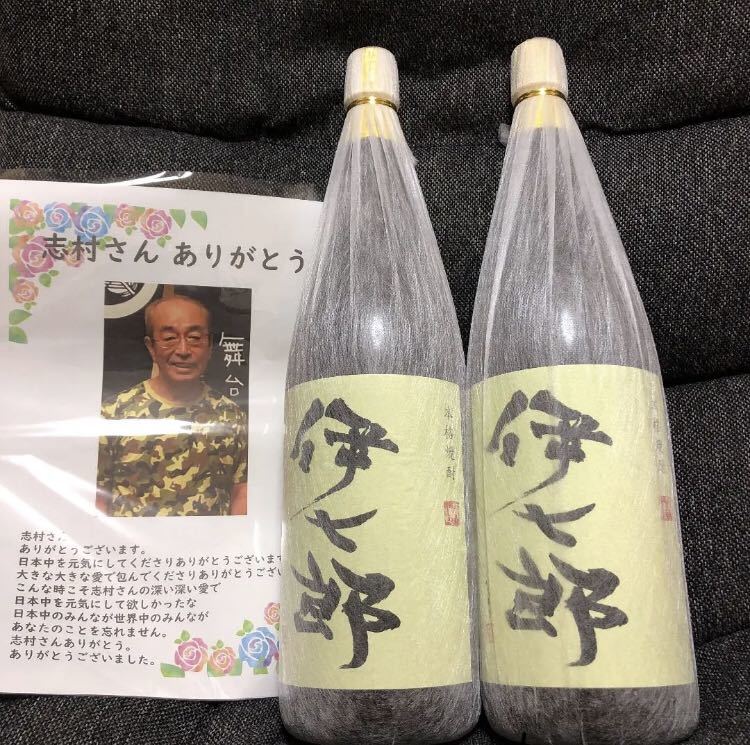 志村さん ありがとう
舞台
志村さん
ありがとうございます。
日本中を元気にしてくださりありがとうございます
大きな大きな愛で包んでくださりありがとうござい
こんな時こそ志村さんの深い深い愛で
日本中を元気にして欲しかったな
日本中のみんなが世界中のみんなが
あなたのことを忘れません。
志村さんありがとう。
ありがとうございました。
本格焼酎
伊七郎
本格焼酎
伊七郎